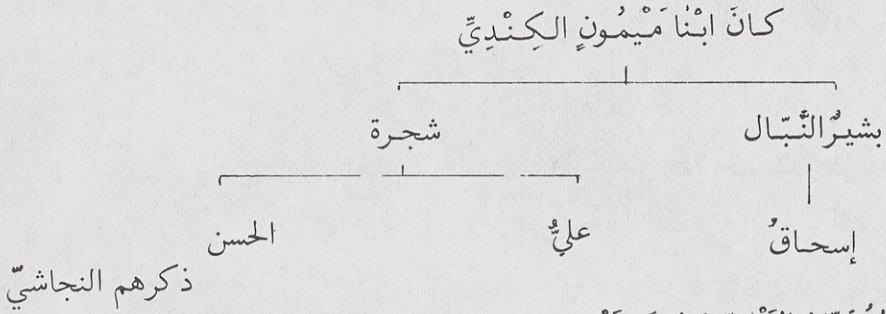 كانَ ابْنَا مَيْمُونٍ الكِنْدِيِّ
بشيرٌ النَّبّال شجرة
إسحاقُ عليٌّ الحسن
ذكرهم النجاشيّ